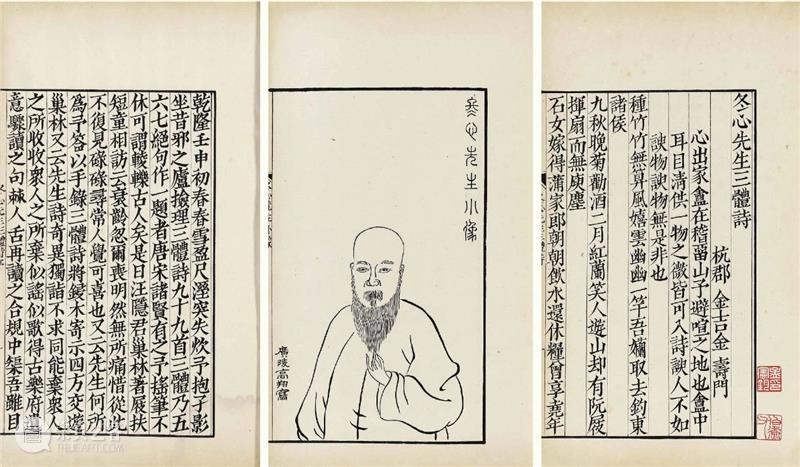 乾隆壬申初春春雪盈尺溼突失炊予抱孑影
坐昔邪之廬撿理三體詩九十九首三體乃五
六七絕句作一題者唐宋諸賢有之予搖筆不
休可謂輘轢古人矣是日汪隱君巢林著屐扶
短童相訪云衰齡忽爾喪明然無所痛惜從此
不復見碌碌尋常人覺可喜也又云先生何所
爲予答以手錄三體詩將鋟木寄示四方交遊
巢林又云先生詩奇異獨詣不求同能棄衆人
之所收收衆人之所棄似謠似歌得古樂府遺
意驟讀之句棘人舌再讀之合規中榘吾雖目
冬心先生小像
廣陵高翔寫
冬心先生三體詩
杭郡 金吉金 壽門
心出家盦在稽留山予避喧之地也盦中
耳目清供一物之微皆可入詩諛人不如
諛物諛物無是非也
種竹竹無昇風嬉雲幽幽一竿吾嬾取去釣東
諸侯
九秋晚菊勸酒二月紅蘭笑人遊山却有阮屐
揮扇而無庾塵
石女嫁得蒲家郎朝朝飲水還休糧曾享堯年